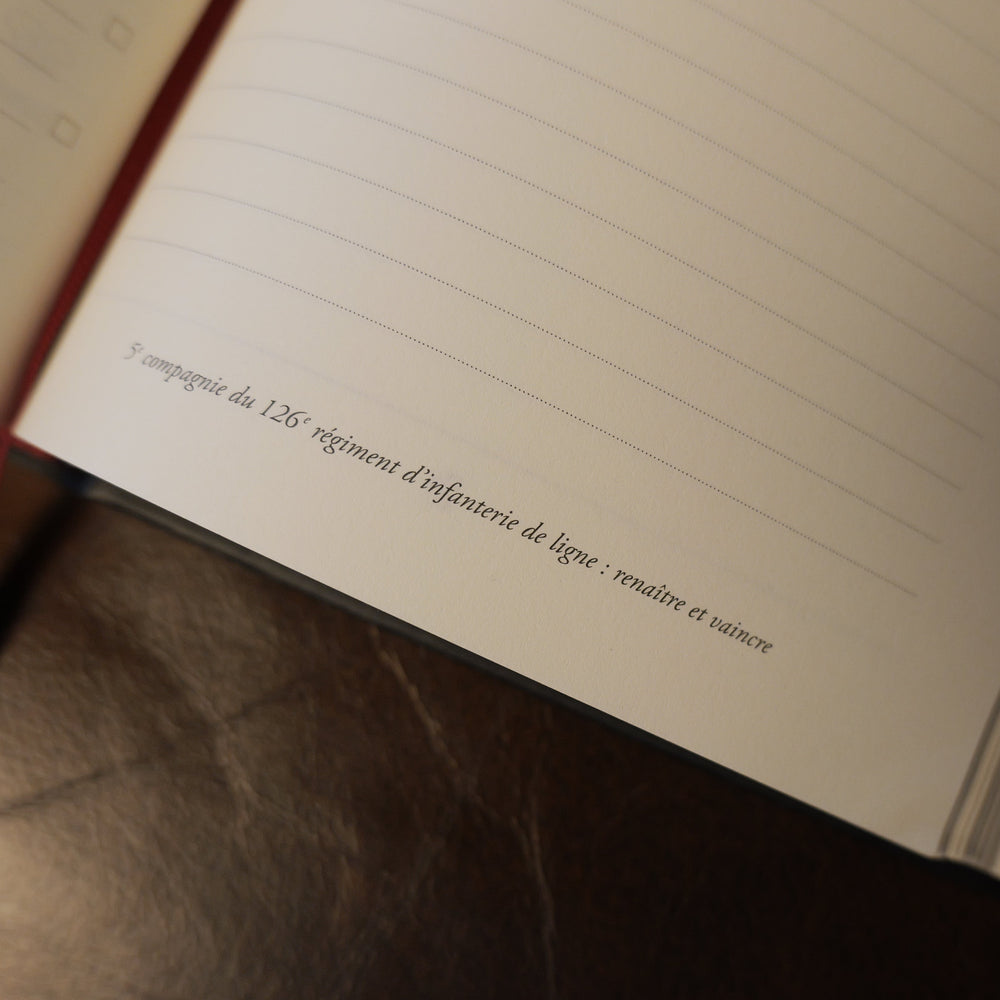 5e compagnie du 126e régiment d'infanterie de ligne : renaître et vaincre